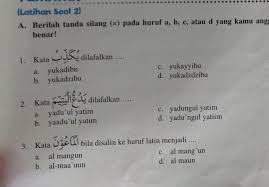 (Latihan Soal 2)
A. Berilah tanda silang (×) pada huruf a, b, c, atau d yang kamu ang
benar!
1. Kata يُكَذِّبُ dilafalkan ....
a. yukadibu
c. yukayyibu
b. yukadzibu
d. yukadzdzibu
2. Kata يَدُعُّ الْيَتِيْمَ dilafalkan ....
a. yadu'ul yatim
c. yadungul yatim
b. yaadu'ul yatim
d. yadu'ngul yatiim
3. Kata الْمَاعُوْنَ bila disalin ke huruf latin menjadi ....
a. al mangun
c. al mang'un
b. al-maa'uun
d. al maun